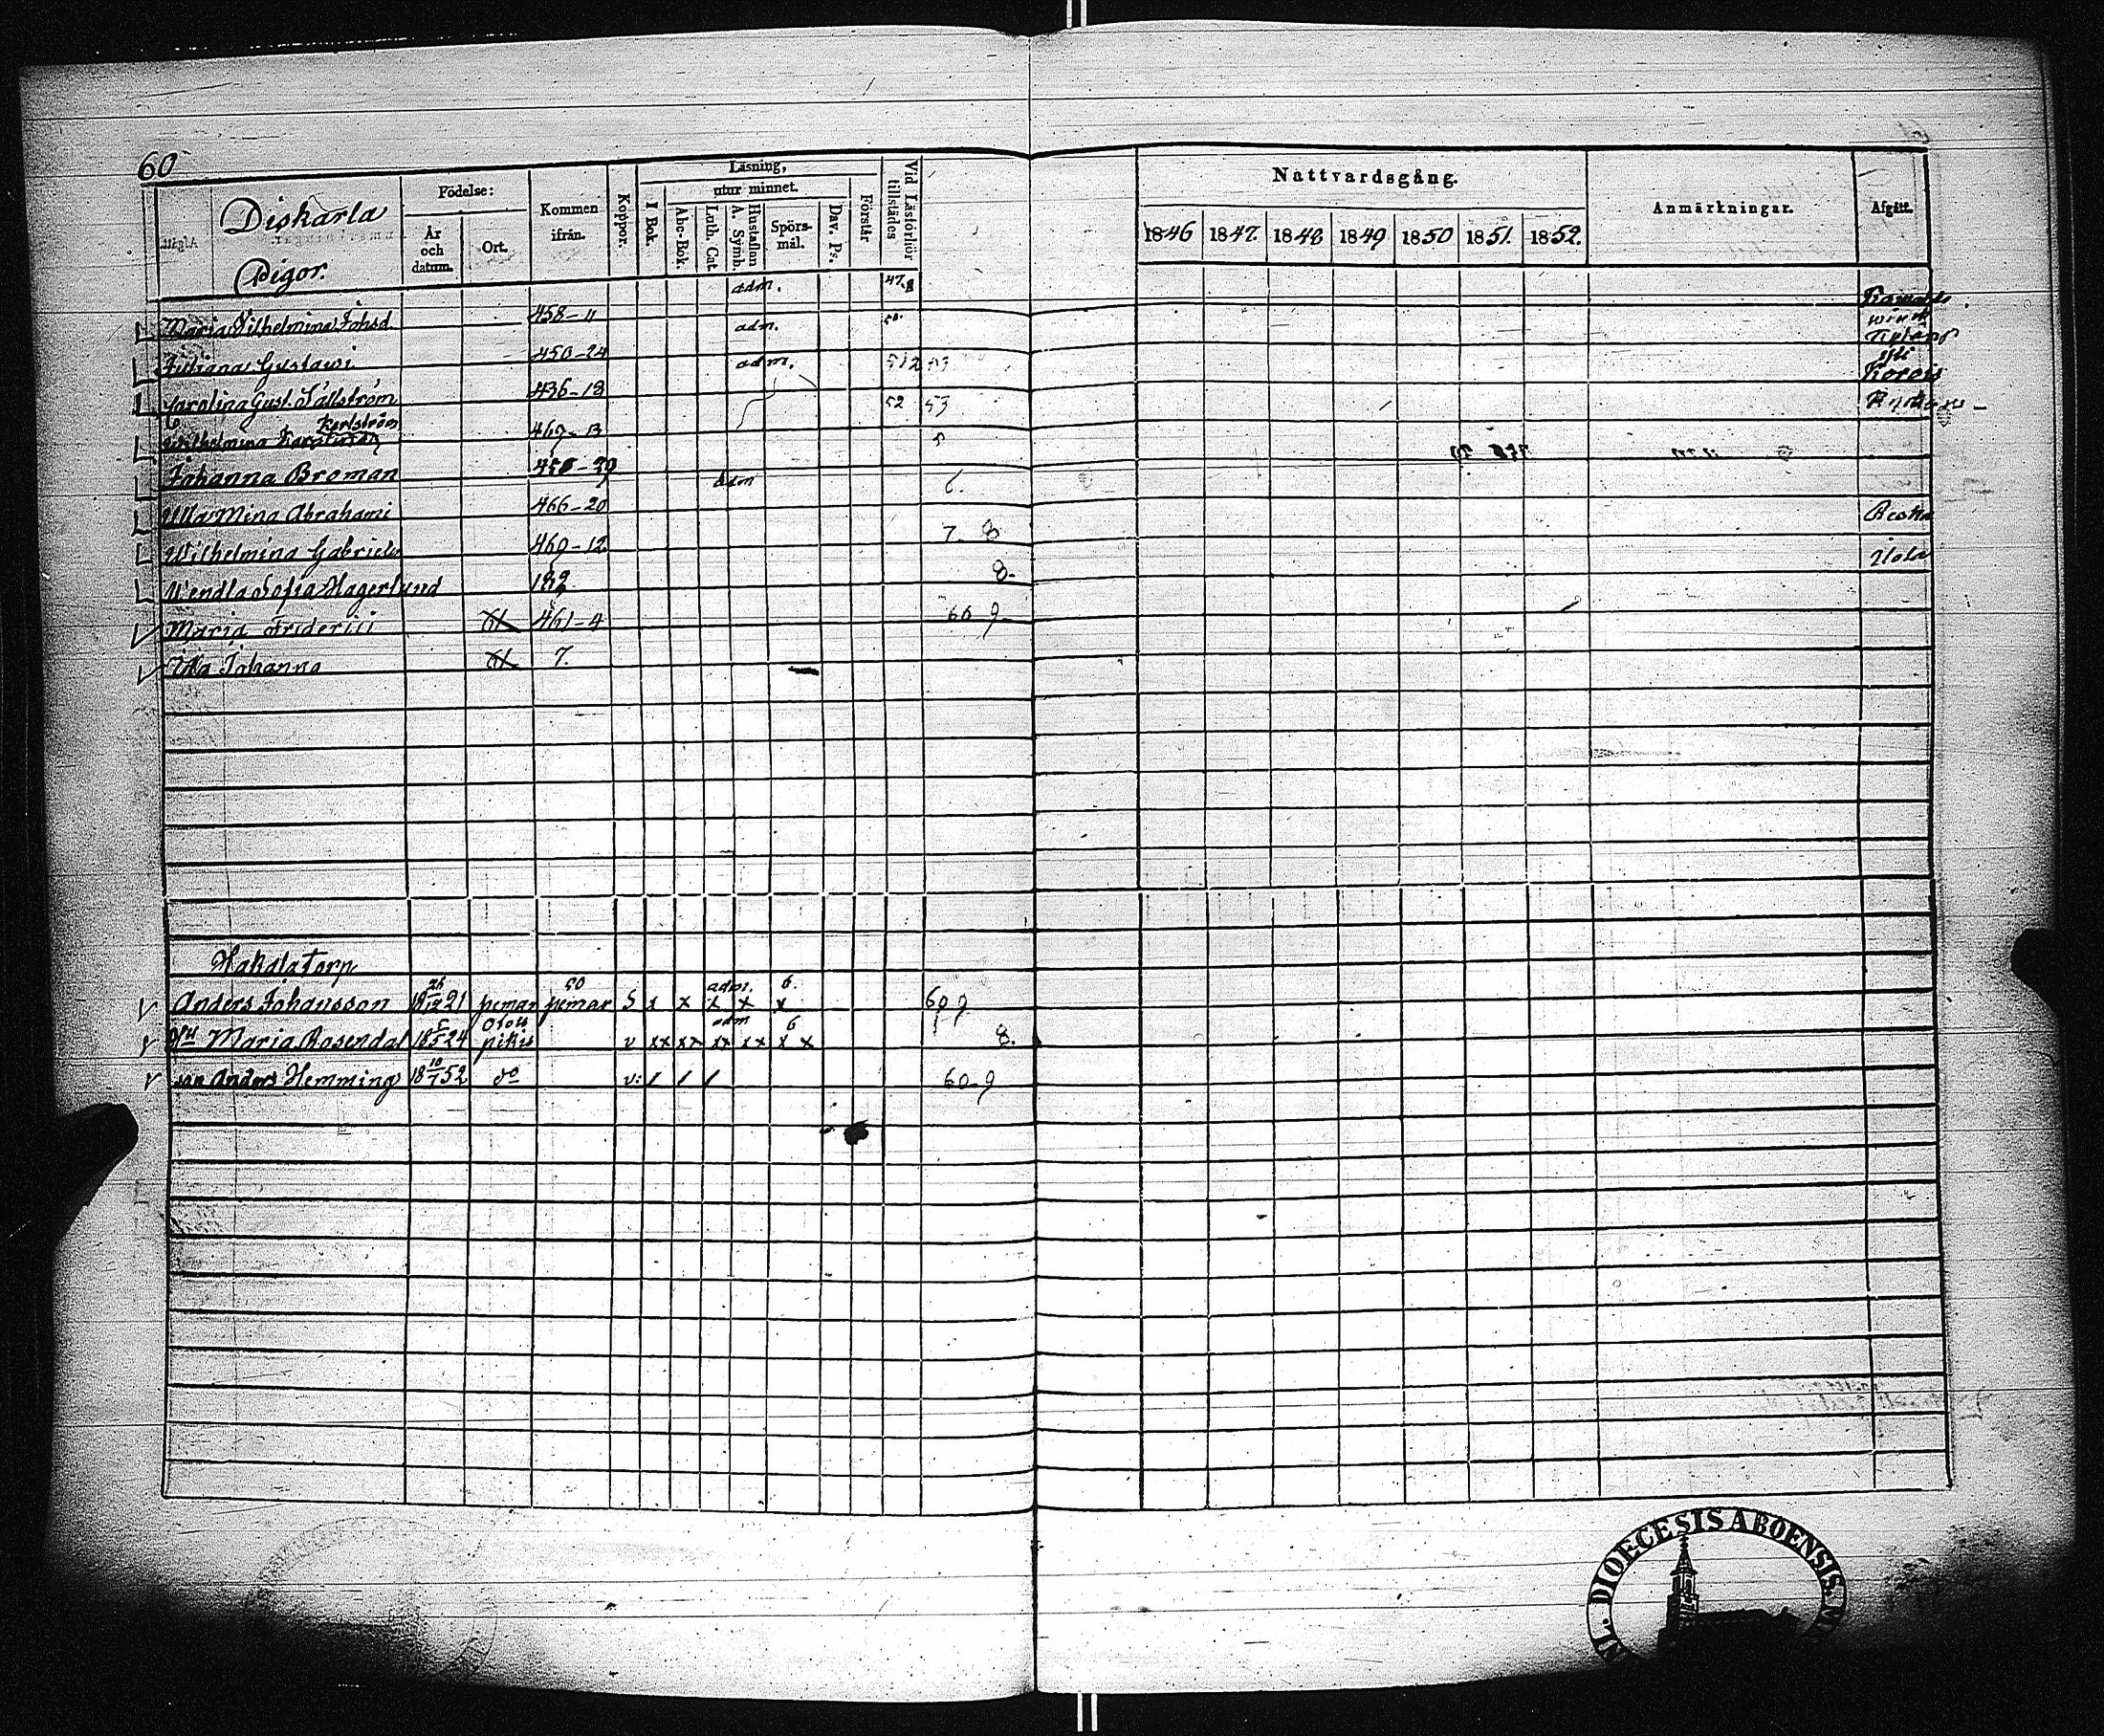 60
Diskarla
Pigor.
Födelse:
År och datum.
Ort.
Kommen ifrån.
Koppor.
Läsning,
I Bok.
utur minnet.
Abc-Bok.
Luth. Cat.
Hustaflan A. Symb.
Spörs-mål.
Dav. Ps.
Förstår
Vid Läsförhör tillstädes
Nattvardsgång.
1846 1847. 1848 1849 1850 1851. 1852.
Anmärkningar.
Afgått.
adm. 47.8
Maria Vilhelmina Johsd. 458-11 adm. 50.
Juliana Gustawi 450-24 adm. 512 53
Carolina Gust. Sällström 436-18 52 53
Karlström
Wilhelmina 469-13
Johanna Broman adm 6.
Ulla Mina Abrahami 466-20
Wilhelmina Gabriels 469-12 7. 8
Wendla Sofia Hagerlund 182 8.
Maria Friderici 461-4 60 9
Ulla Johanna 7.
Hakala torp
Anders Johansson 18 26/12 21 pemar 50 pemar S x x adm. x x 6 x 60 9
Hu Maria Rosendal 18 5/5 24 pikis v xx xx adm xx xx 6 x x 8.
son Anders Hemming 18 10/7 52 do v: / / / 60-9
DIOECESIS ABOENSIS